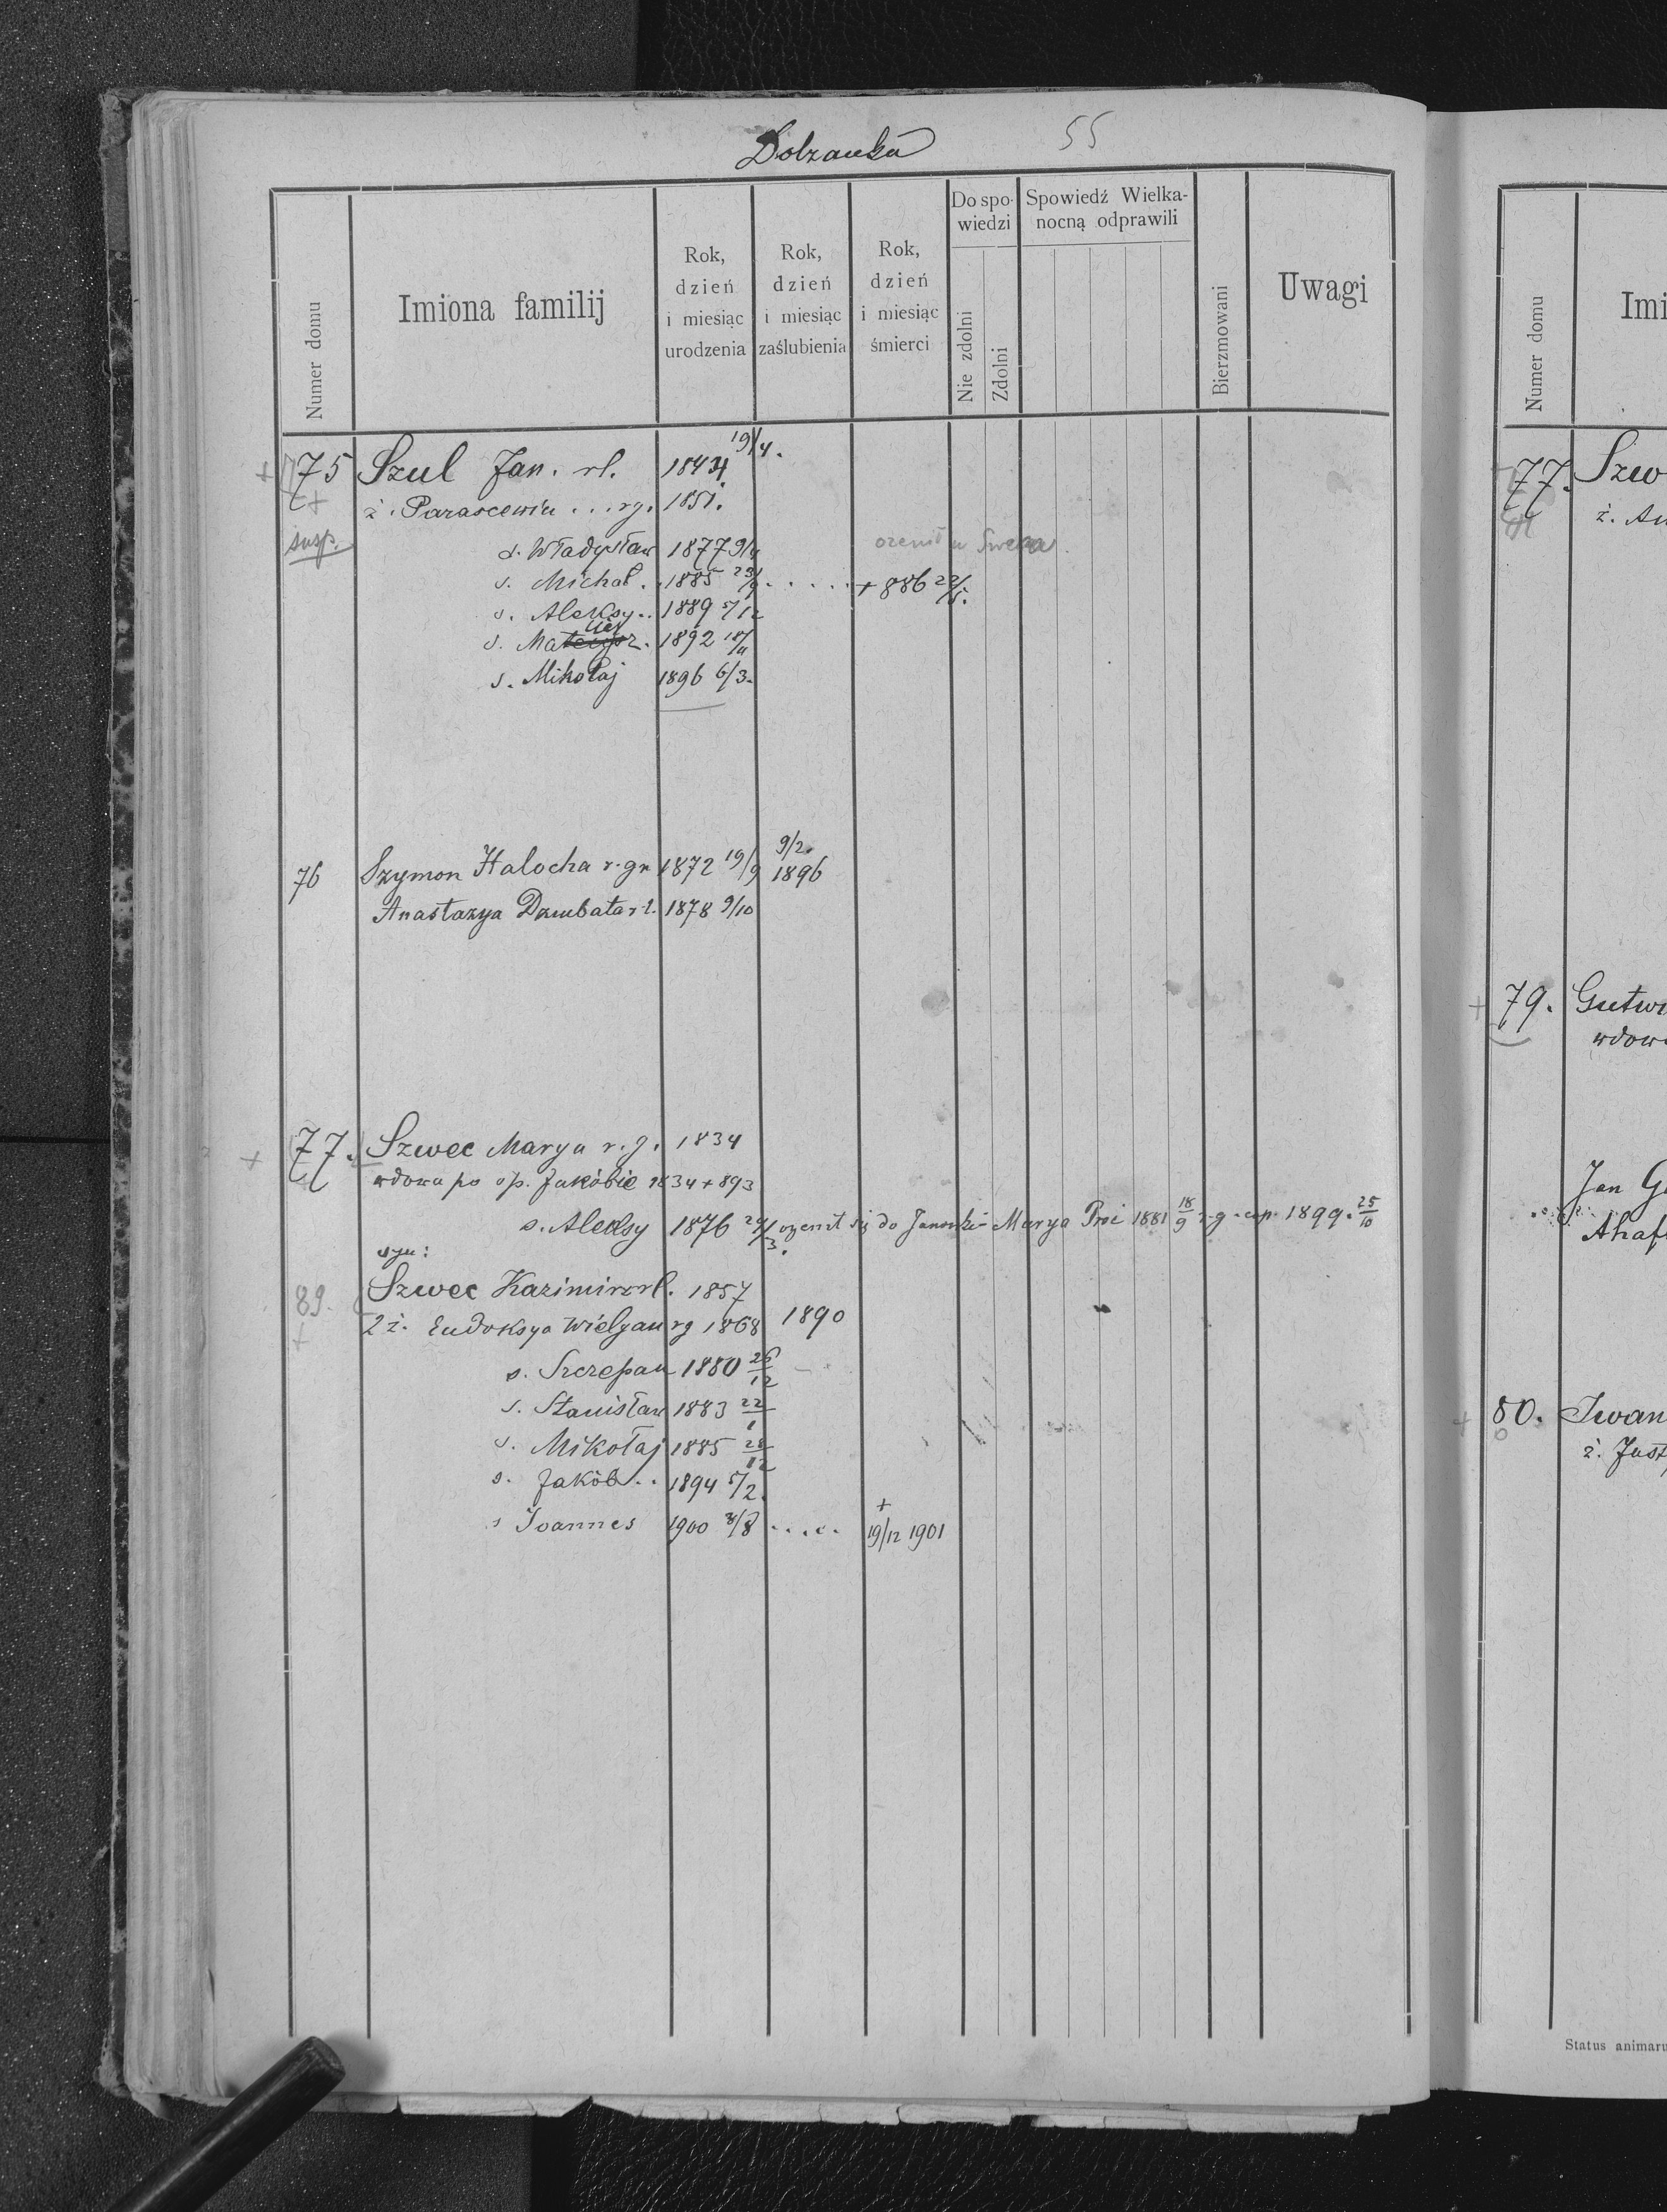 Dolzanka 55
Numer domu
Imiona familij
Rok, dzień i miesiąc urodzenia
Rok, dzień i miesiąc zaślubienia
Rok, dzień i miesiąc śmierci
Do spowiedzi
Nie zdolni
Zdolni
Spowiedź Wielkanocną odprawili
Bierzmowani
Uwagi
75 Szul Jan. rl. 1844 19/4.
ż. Parascewia ... rg. 1851.
susp.
s. Władysław 1877 9/4 ożenił u Sweca
s. Michał . . 1885 23/9 . . . . . + 886 22/5.
s. Aleksy . . 1889 5/12
s. Mateusz 1892 18/11
s. Mikołaj 1896 6/3.
76 Szymon Halocha r. gr. 1872 19/9 9/2. 1896
Anastazya Dzmbata r. l. 1878 9/10
77. Szwec Marya r. g. 1834
wdowa po śp. Jakóbie 1834 + 893
s. Aleksy 1876 24/3. ożenił się do Janowki - Marya Proć 1881 18/9 r. g. cop. 1899. 25/10
syn:
89. Szwec Kazimirz rl. 1857
2 ż. Eudoksya Wielgan rg 1868 1890
s. Szczepan 1880 26/12
s. Stanisław 1883 22/1
s. Mikołaj 1885 28/12
s. Jakób . . 1894 5/2.
s Joannes 1900 8/8 . . . . . + 19/12 1901
Numer domu
Imi
77. Szw
ż. An
79. Gutw
wdow
Jan G
Ahaf
80. Iwan
ż. Just
Status animaru